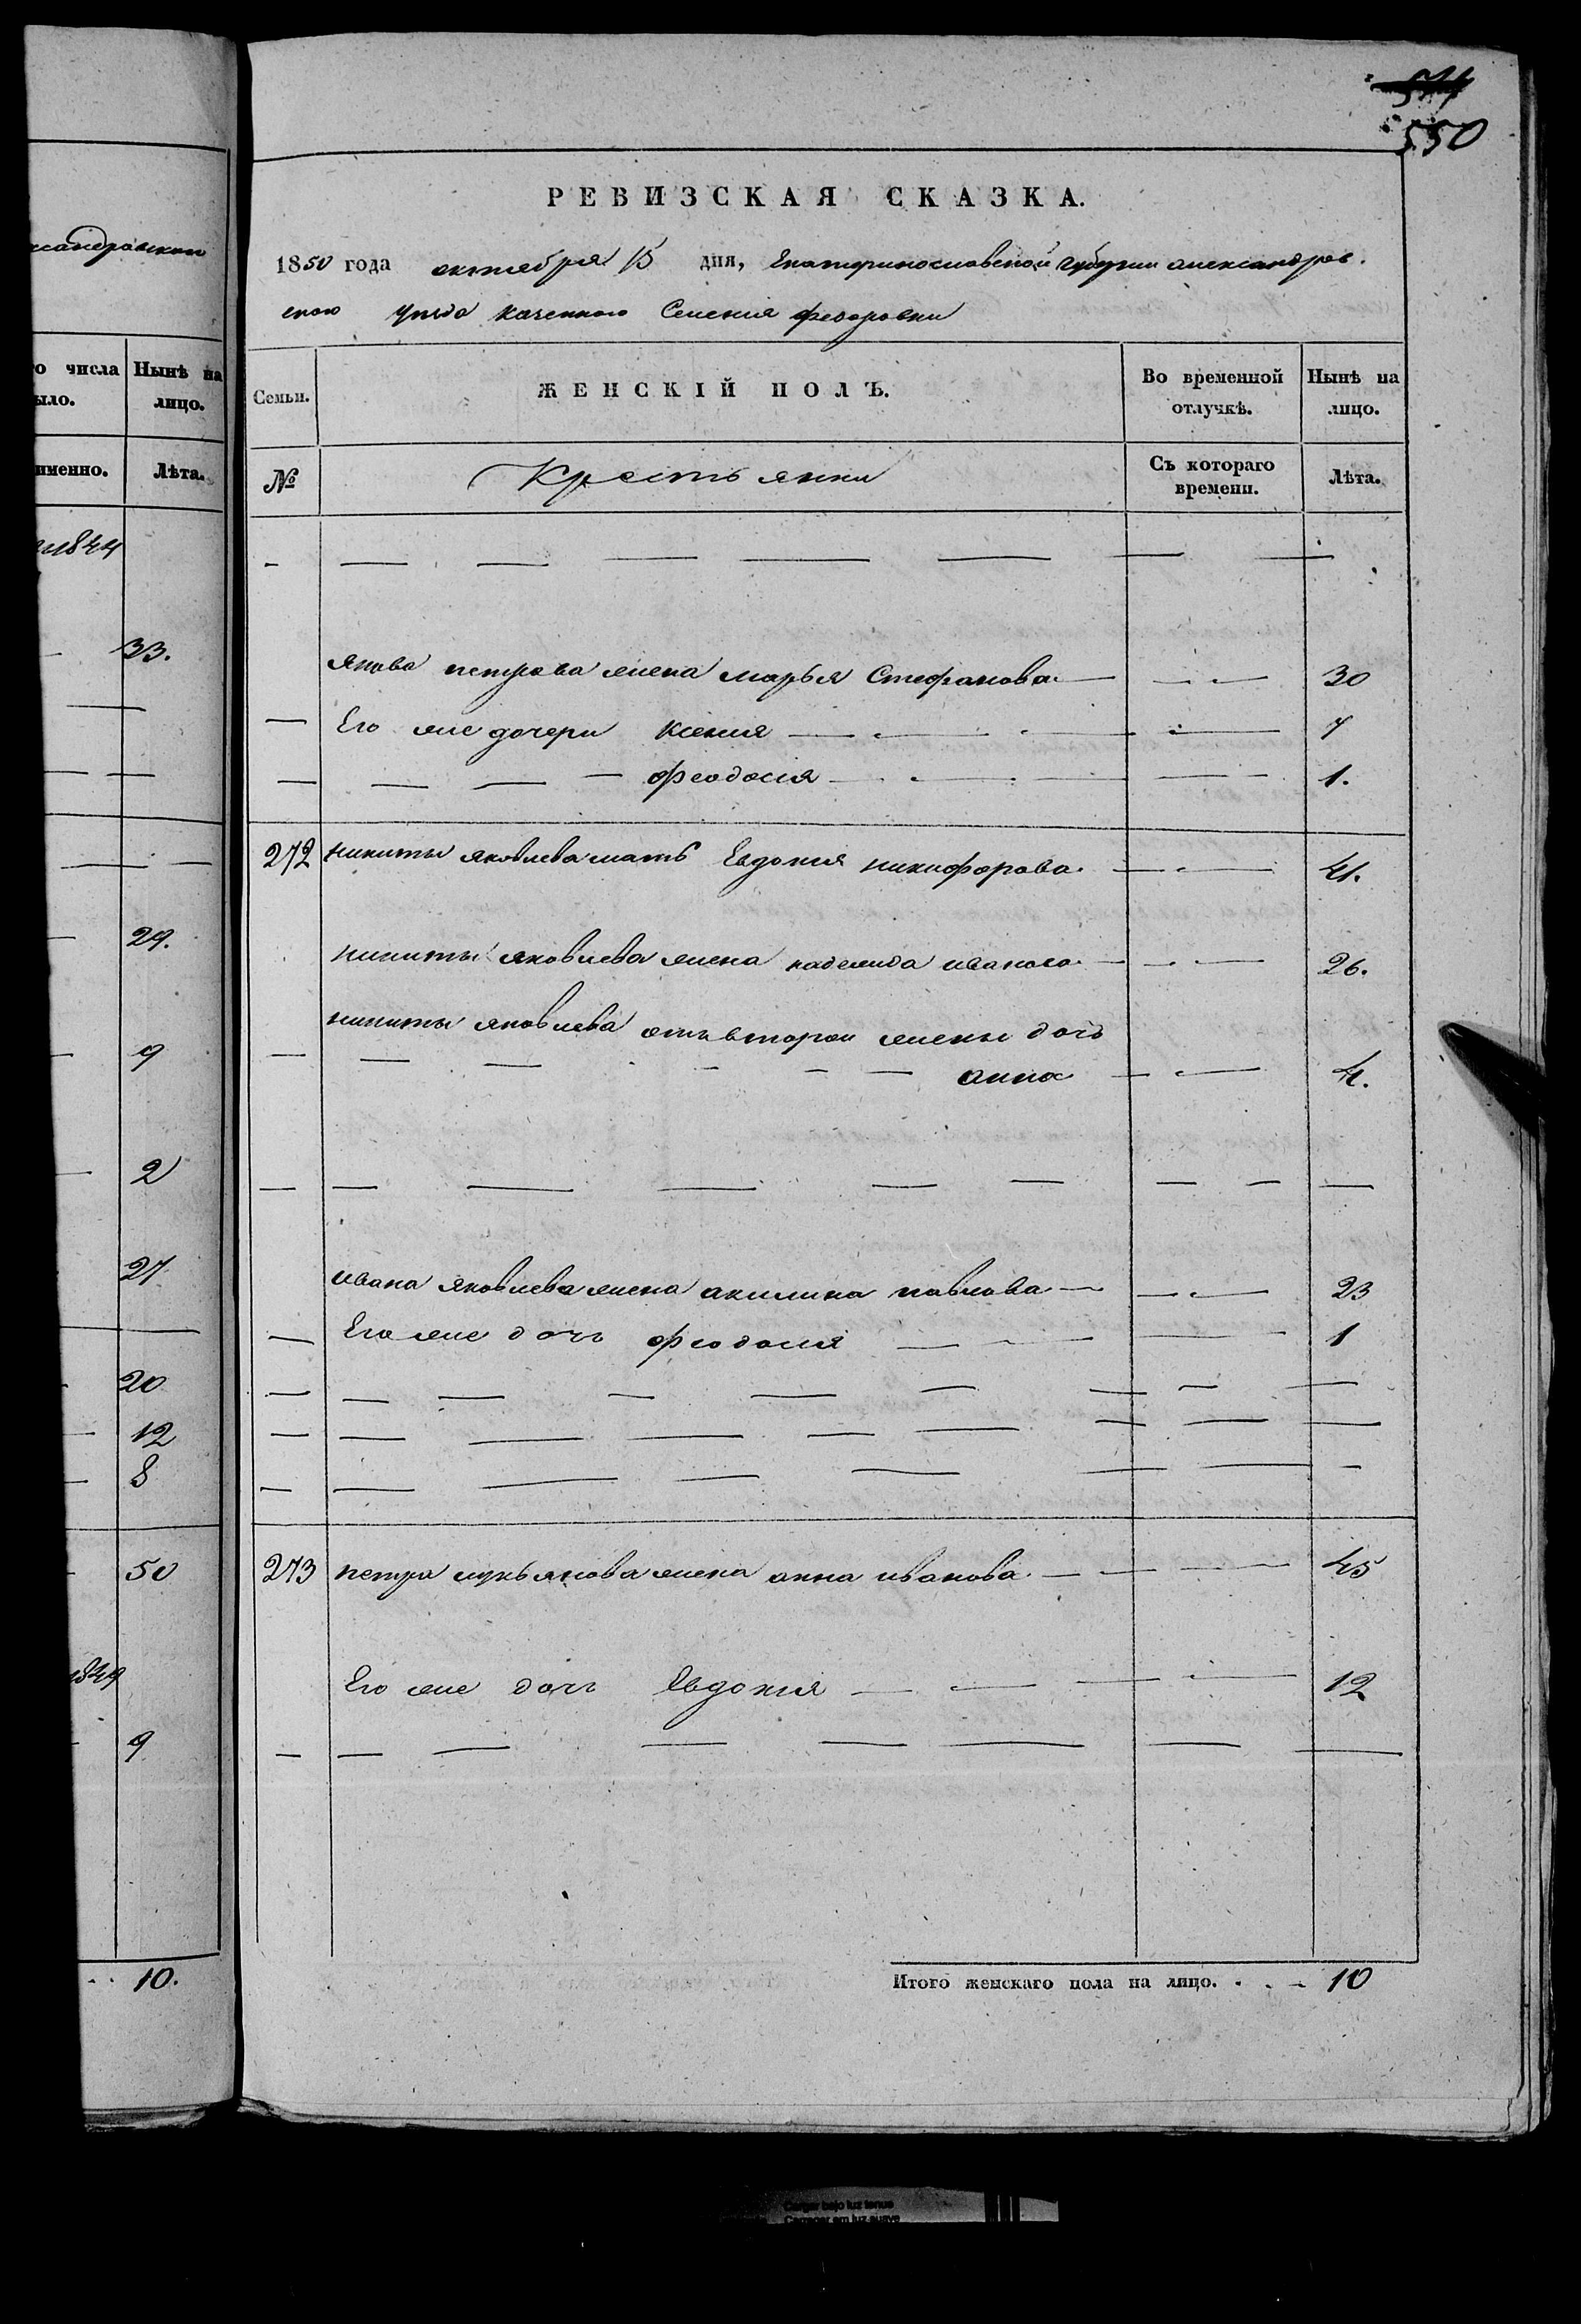 ксандровскои
о числа
ыло.
Нынѣ на
лицо.
именно.
Лѣта.
1844
33.
29.
9
2
27
20
12
8
50
1849
9
10.
544
550
РЕВИЗСКАЯ СКАЗКА.
1850 года октября 15 дня, Екатеринославской губернии александров.
скаго уезда казенного Селения федоровки
Семьи.
ЖЕНСКІЙ ПОЛЪ.
Во временной
отлучкѣ.
Нынѣ на
лицо.
№
Крестьянки
Съ котораго
времени.
Лѣта.
Якова петрова жена марья Стефанова 30
Его же дочери Ксения 7
феодосия 1.
272 никиты яковлева мать Евдокия никифорова 41.
никиты яковлева жена надежда иванова 26.
никиты яковлева отъ второи жены дочь
анна 4.
ивана яковлева жена акилина павлова 23
Его же дочь феодосия 1
273 петра лукьянова жена анна иванова 45
Его же дочь Евдокия 12
Итого женскаго пола на лицо. 10
Cargar bajo luz tenue
Carregar em luz suave